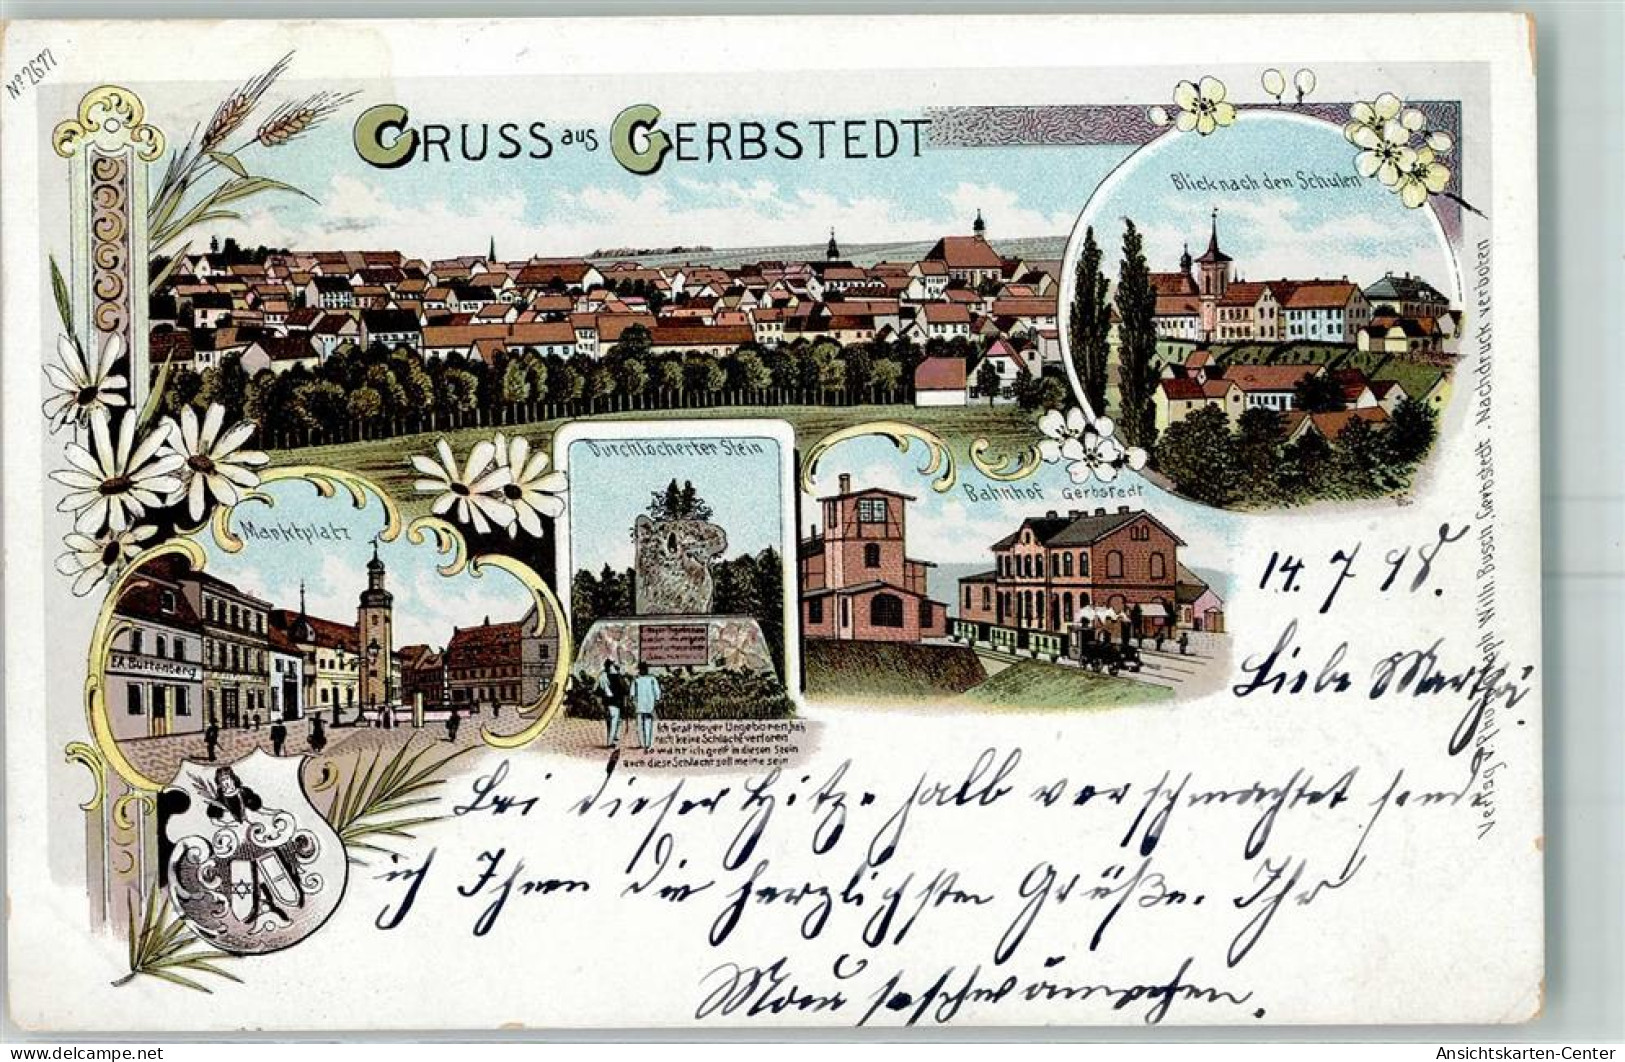 No 2677
GRUSS aus GERBSTEDT
Blick nach den Schulen
Durchlöcherter Stein
Bahnhof Gerbstedt
Marktplatz
Buttenberg
Ich Graf Hoyer Ungeboren, hab
noch keine Schlacht verloren
so wahr ich greif in diesen Stein
auch diese Schlacht soll meine sein
14. 7 98.
Liebe Martha
Bei dieser Hitze halb verschmachtet sende
ich Ihnen die herzlichsten Grüße. Ihr
Verlag v. Wilh. Busch, Gerbstedt. Nachdruck verboten
Ansichtskarten-Center
delcampe.net